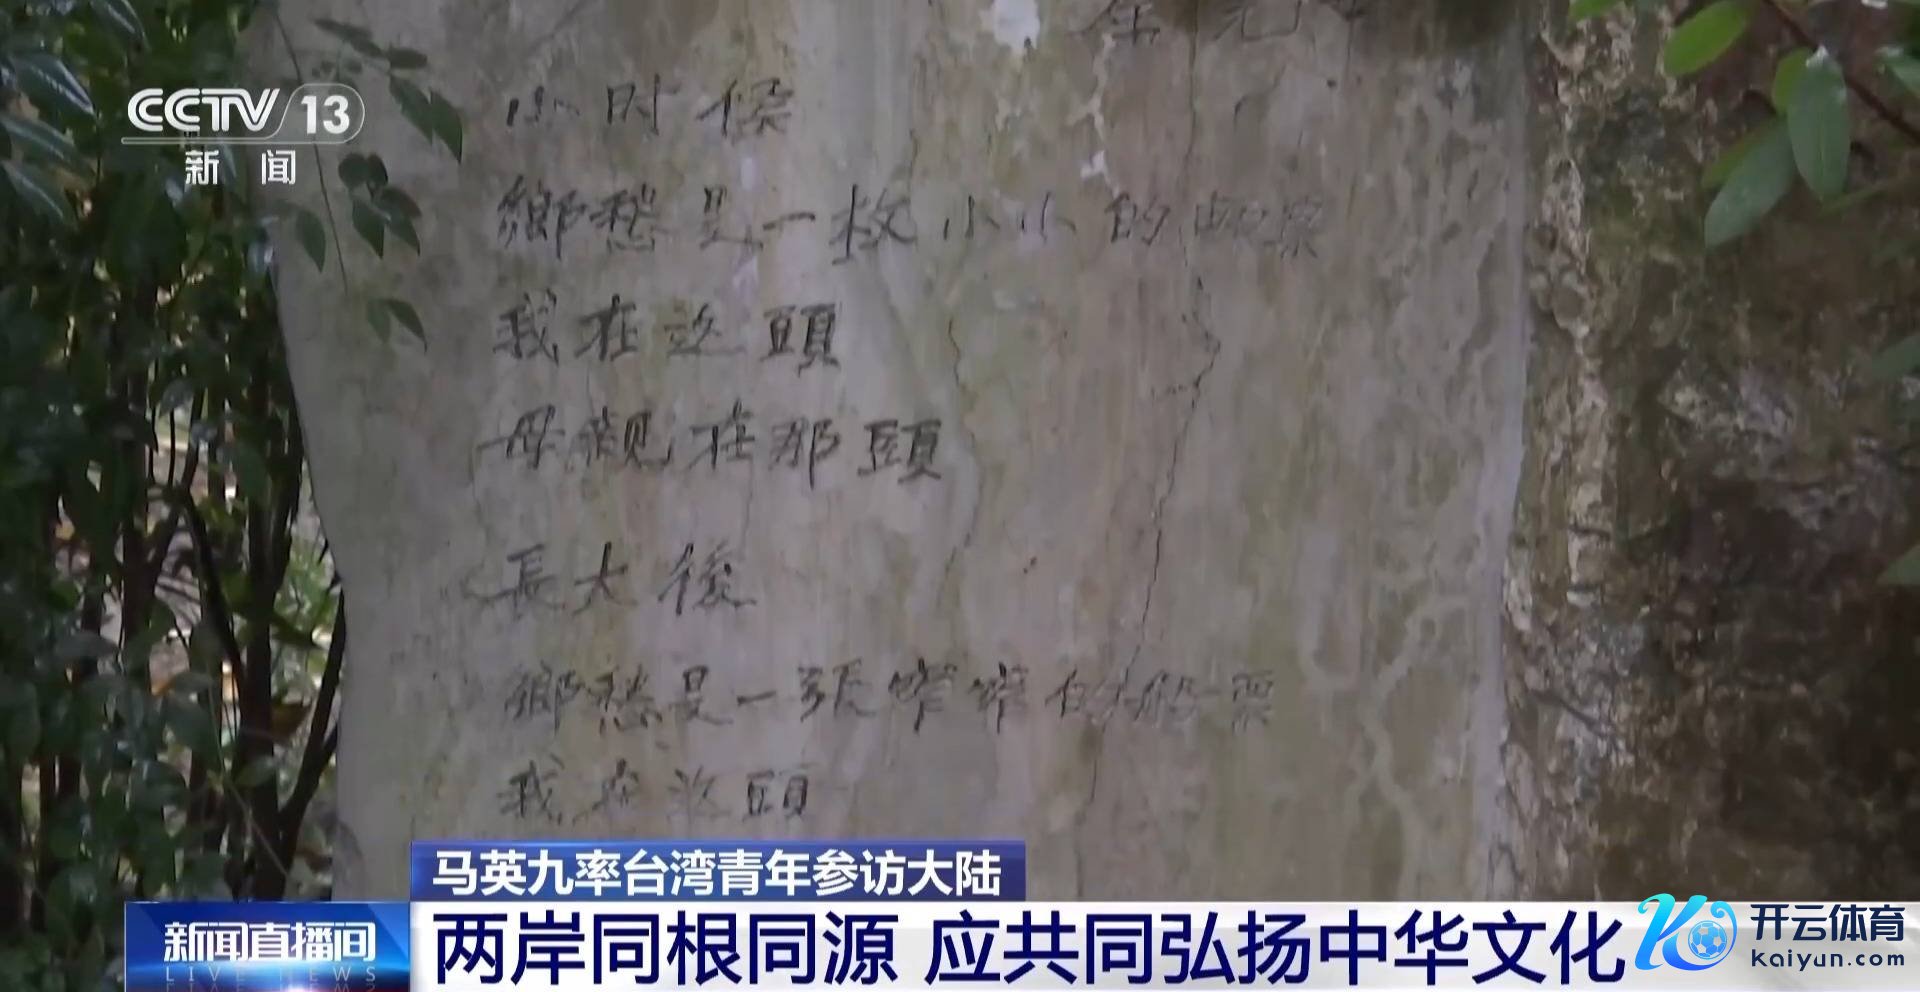 CCTV 13
新闻
余光中
小时候
鄉愁是一枚小小的邮票
我在这頭
母親在那頭
長大後
鄉愁是一張窄窄的船票
我在这頭
马英九率台湾青年参访大陆
新闻直播间
LIVE NEWS
两岸同根同源 应共同弘扬中华文化
开云体育
kaiyun.com